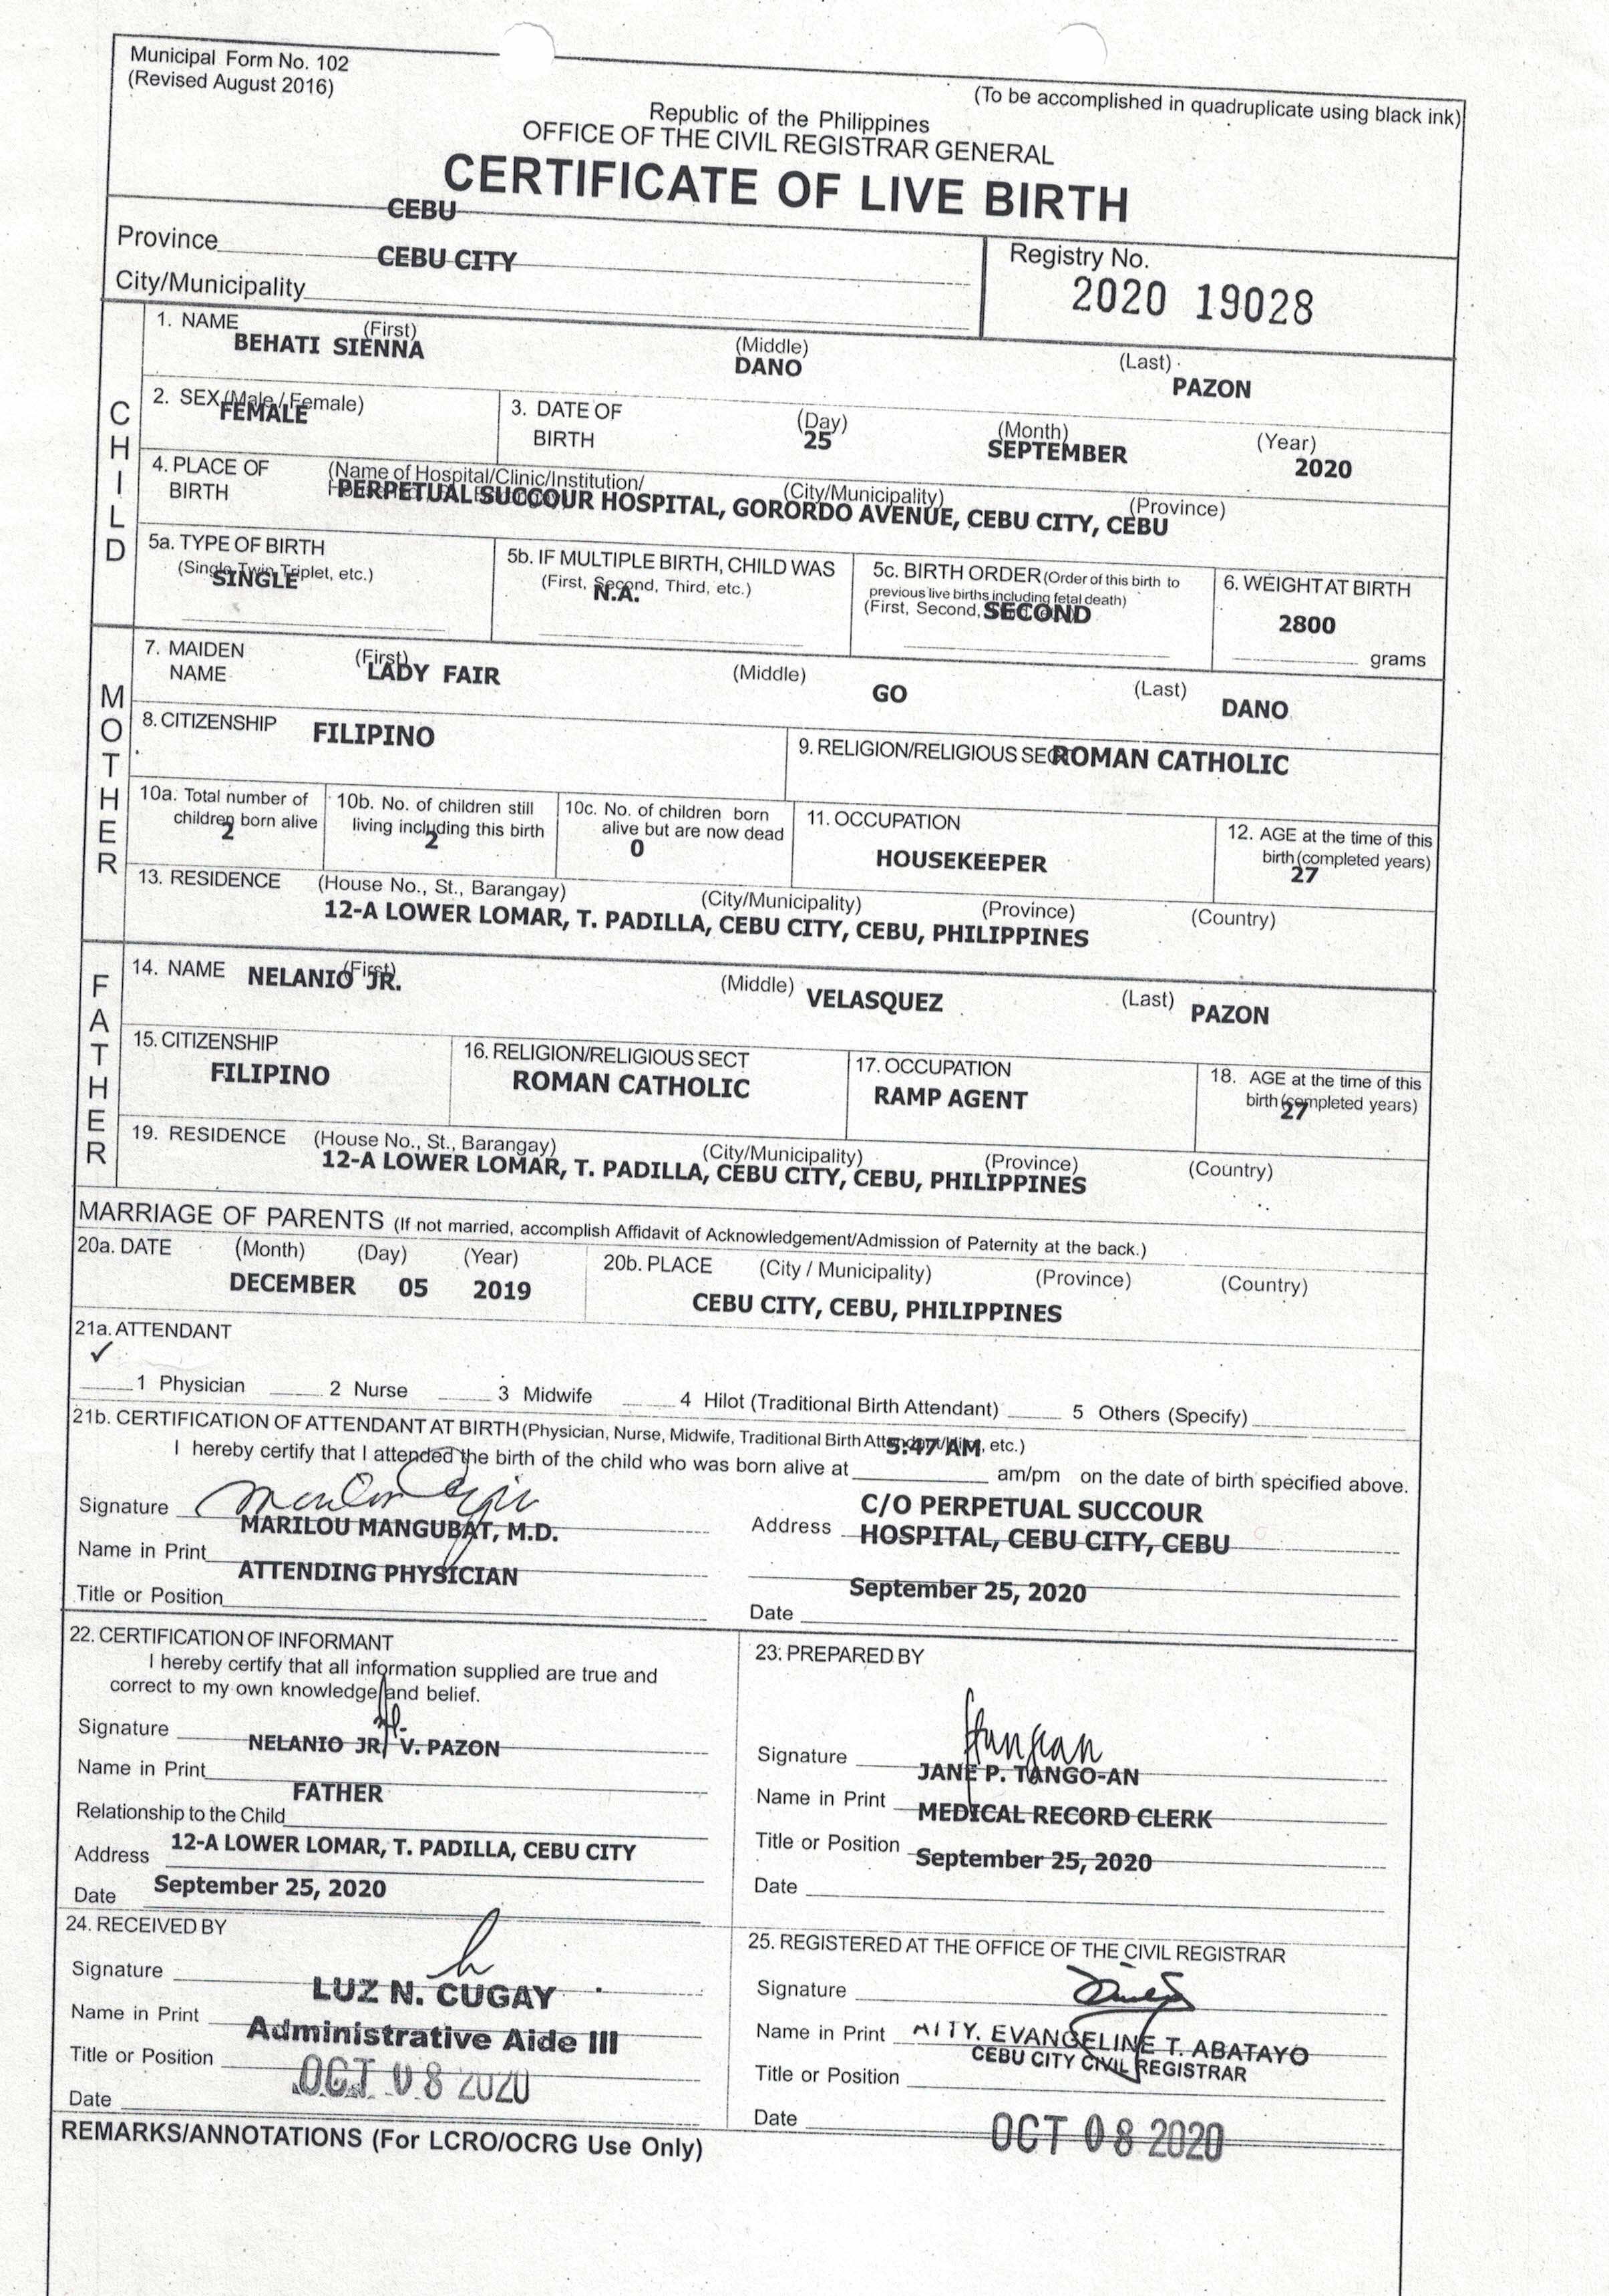 Municipal Form No. 102
(Revised August 2016)
(To be accomplished in quadruplicate using black ink)
Republic of the Philippines
OFFICE OF THE CIVIL REGISTRAR GENERAL
CERTIFICATE OF LIVE BIRTH
Province CEBU
City/Municipality CEBU CITY
Registry No.
2020 19028
CHILD
1. NAME (First) (Middle) (Last)
BEHATI SIENNA DANO PAZON
2. SEX (Male / Female)
FEMALE
3. DATE OF BIRTH (Day) (Month) (Year)
25 SEPTEMBER 2020
4. PLACE OF BIRTH (Name of Hospital/Clinic/Institution/ (City/Municipality) (Province)
PERPETUAL SUCCOUR HOSPITAL, GORORDO AVENUE, CEBU CITY, CEBU
5a. TYPE OF BIRTH
(Single, Twin, Triplet, etc.)
SINGLE
5b. IF MULTIPLE BIRTH, CHILD WAS
(First, Second, Third, etc.)
N.A.
5c. BIRTH ORDER (Order of this birth to
previous live births including fetal death)
(First, Second,
SECOND
6. WEIGHT AT BIRTH
2800
grams
MOTHER
7. MAIDEN NAME (First) (Middle) (Last)
LADY FAIR GO DANO
8. CITIZENSHIP FILIPINO
9. RELIGION/RELIGIOUS SECT ROMAN CATHOLIC
10a. Total number of
children born alive
2
10b. No. of children still
living including this birth
2
10c. No. of children born
alive but are now dead
0
11. OCCUPATION
HOUSEKEEPER
12. AGE at the time of this
birth (completed years)
27
13. RESIDENCE (House No., St., Barangay) (City/Municipality) (Province) (Country)
12-A LOWER LOMAR, T. PADILLA, CEBU CITY, CEBU, PHILIPPINES
FATHER
14. NAME (First) (Middle) (Last)
NELANIO JR. VELASQUEZ PAZON
15. CITIZENSHIP
FILIPINO
16. RELIGION/RELIGIOUS SECT
ROMAN CATHOLIC
17. OCCUPATION
RAMP AGENT
18. AGE at the time of this
birth (completed years)
27
19. RESIDENCE (House No., St., Barangay) (City/Municipality) (Province) (Country)
12-A LOWER LOMAR, T. PADILLA, CEBU CITY, CEBU, PHILIPPINES
MARRIAGE OF PARENTS (If not married, accomplish Affidavit of Acknowledgement/Admission of Paternity at the back.)
20a. DATE (Month) (Day) (Year)
DECEMBER 05 2019
20b. PLACE (City / Municipality) (Province) (Country)
CEBU CITY, CEBU, PHILIPPINES
21a. ATTENDANT
✓
1 Physician 2 Nurse 3 Midwife 4 Hilot (Traditional Birth Attendant) 5 Others (Specify)
21b. CERTIFICATION OF ATTENDANT AT BIRTH (Physician, Nurse, Midwife, Traditional Birth Attendant/Hilot, etc.)
I hereby certify that I attended the birth of the child who was born alive at 5:47 AM am/pm on the date of birth specified above.
Signature
Name in Print MARILOU MANGUBAT, M.D.
Title or Position ATTENDING PHYSICIAN
Address C/O PERPETUAL SUCCOUR
HOSPITAL, CEBU CITY, CEBU
Date September 25, 2020
22. CERTIFICATION OF INFORMANT
I hereby certify that all information supplied are true and
correct to my own knowledge and belief.
Signature
Name in Print NELANIO JR. V. PAZON
Relationship to the Child FATHER
Address 12-A LOWER LOMAR, T. PADILLA, CEBU CITY
Date September 25, 2020
23. PREPARED BY
Signature
Name in Print JANE P. TANGO-AN
Title or Position MEDICAL RECORD CLERK
Date September 25, 2020
24. RECEIVED BY
Signature
Name in Print LUZ N. CUGAY
Title or Position Administrative Aide III
Date OCT 08 2020
25. REGISTERED AT THE OFFICE OF THE CIVIL REGISTRAR
Signature
Name in Print ATTY. EVANGELINE T. ABATAYO
Title or Position CEBU CITY CIVIL REGISTRAR
Date OCT 08 2020
REMARKS/ANNOTATIONS (For LCRO/OCRG Use Only)